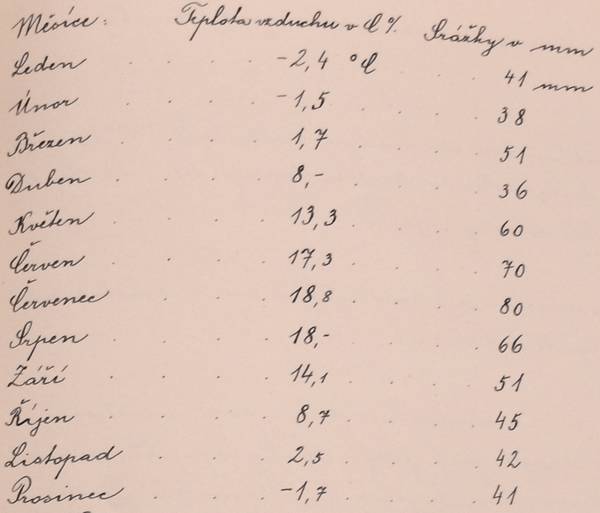 Měsíce: Teplota vzduchu v C% Srážky v mm
Leden . . . . -2,4 °C . . . 41 mm
Únor . . . . -1,5 . . . . 38
Březen . . . . 1,7 . . . . 51
Duben . . . . 8,- . . . . 36
Květen . . . . 13,3 . . . . 60
Červen . . . . 17,3 . . . . 70
Červenec . . . . 18,8 . . . . 80
Srpen . . . . 18,- . . . . 66
Září . . . . 14,1 . . . . 51
Říjen . . . . 8,7 . . . . 45
Listopad . . . 2,5 . . . . 42
Prosinec . . . -1,7 . . . . 41